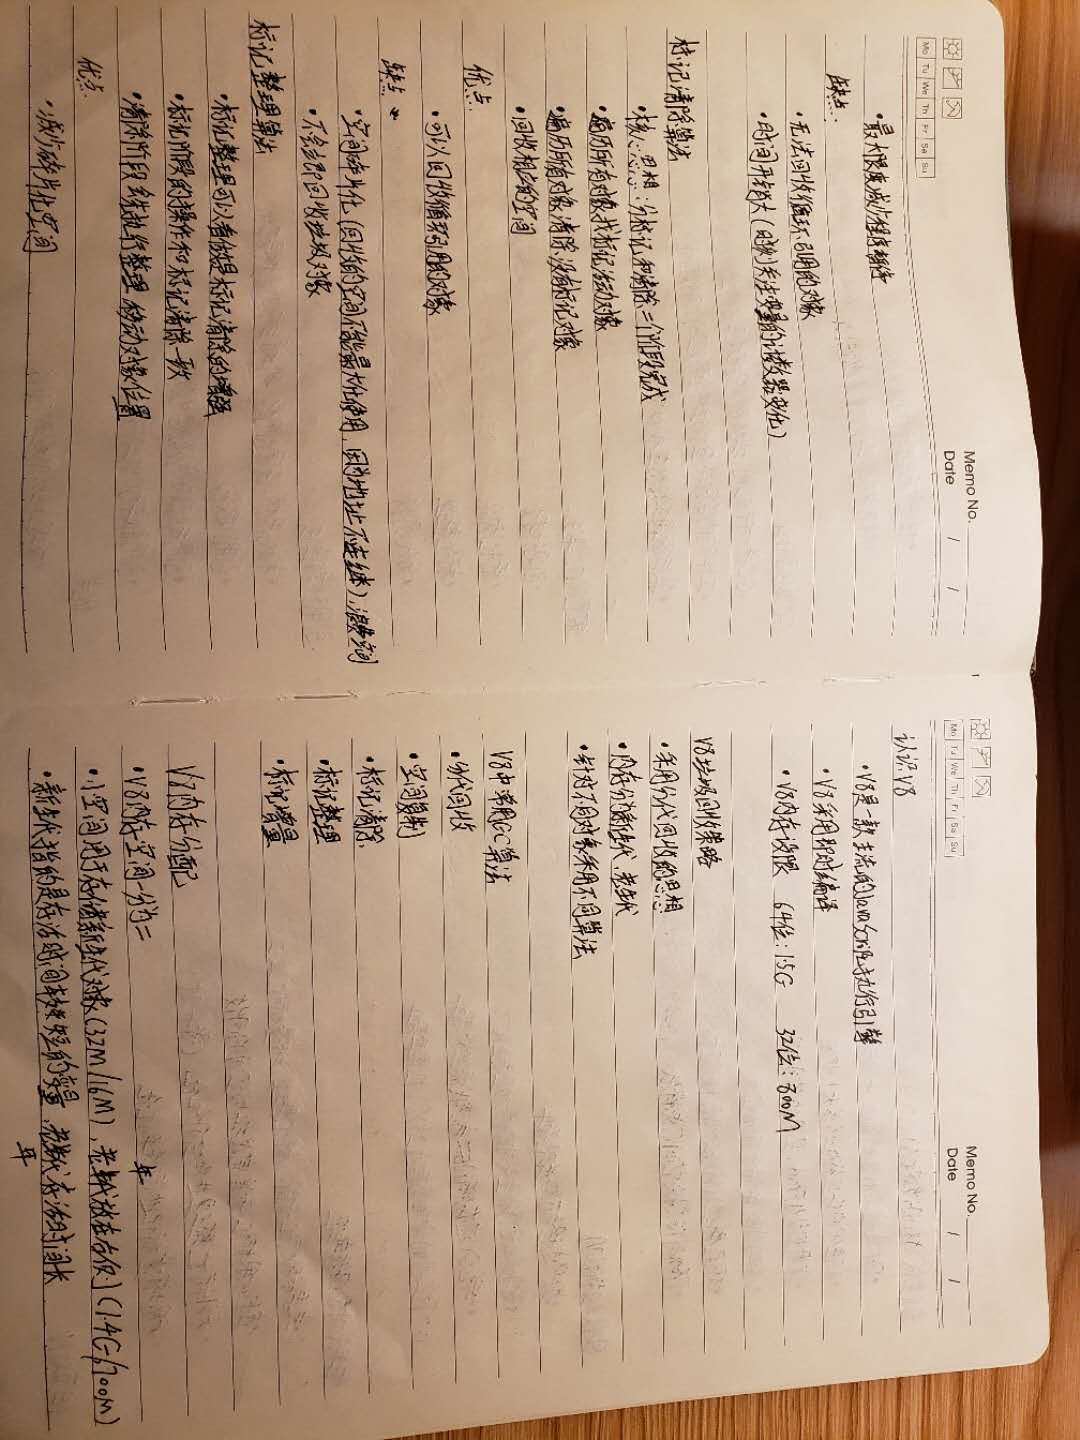 Memo No.
Mo Tu We Th Fr Sa Su
Date / /
• 最大限度减少程序暂停
缺点:
• 无法回收循环引用的对象
• 时间开销大(时刻关注变量的计数器变化)
标记清除算法
• 核心思想:分标记和清除二个阶段完成
• 遍历所有对象找标记活动对象
• 遍历所有对象清除没有标记对象
• 回收相应的空间
优点:
• 可以回收循环引用的对象
缺点
• 空间碎片化(回收的空间不能最大化使用,因为地址不连续),浪费空间
• 不会立即回收垃圾对象
标记整理算法
• 标记整理可以看做是标记清除的增强
• 标记阶段的操作和标记清除一致
• 清除阶段先执行整理,移动对象位置
优点:
• 减少碎片化空间
Memo No.
Mo Tu We Th Fr Sa Su
Date / /
认识V8
• V8是一款主流的JavaScript执行引擎
• V8采用即时编译
• V8内存设限 64位:1.5G 32位:800M
V8垃圾回收策略
• 采用分代回收的思想
• 内存分为新生代、老生代
• 针对不同对象采用不同算法
V8中常用GC算法
• 分代回收
• 空间复制
• 标记清除
• 标记整理
• 标记增量
V8内存分配
• V8内存空间一分为二
• 小空间用于存储新生代对象(32M/16M),老年代放在右侧(1.4G/700M)
• 新生代指的是存活时间较短的变量,老年代存活时间长